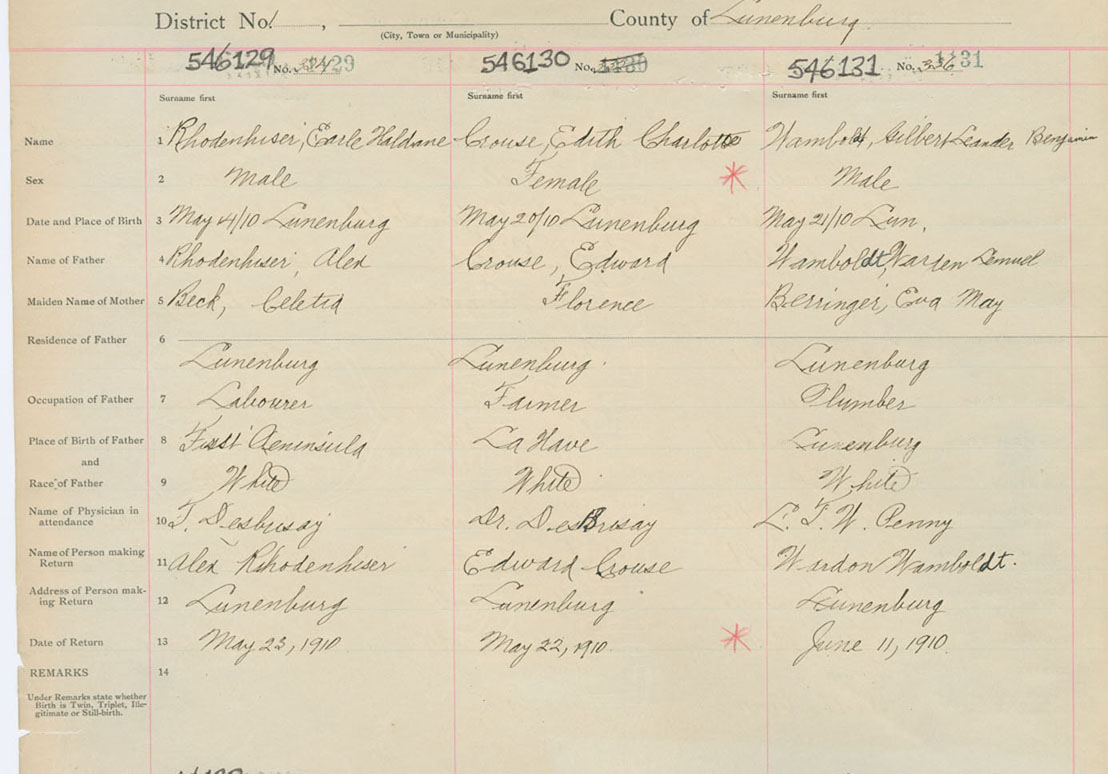 District No. 1, County of Lunenburg
(City, Town or Municipality)
546129 No. 1129 546130 No. 1130 546131 No. 336 1131
Surname first Surname first Surname first
Name 1 Rhodenhiser, Earle Haldane Crouse, Edith Charlotte Wamboldt, Gilbert Leander Benjamin
Sex 2 Male Female Male
Date and Place of Birth 3 May 4/10 Lunenburg May 20/10 Lunenburg May 21/10 Lun.
Name of Father 4 Rhodenhiser, Alex Crouse, Edward Wamboldt, Warden Lemuel
Maiden Name of Mother 5 Beck, Celetia Florence Berringer, Eva May
Residence of Father 6
Lunenburg Lunenburg. Lunenburg
Occupation of Father 7 Labourer Farmer Plumber
Place of Birth of Father 8 First Peninsula La Have Lunenburg
and
Race of Father 9 White White White
Name of Physician in
attendance 10 J. Desbrisay Dr. DesBrisay L. T. W. Penny
Name of Person making
Return 11 Alex Rhodenhiser Edward Crouse Wardon Wamboldt.
Address of Person mak-
ing Return 12 Lunenburg Lunenburg Lunenburg
Date of Return 13 May 23, 1910 May 22, 1910. June 11, 1910.
REMARKS 14
Under Remarks state whether
Birth is Twin, Triplet, Ille-
gitimate or Still-birth.